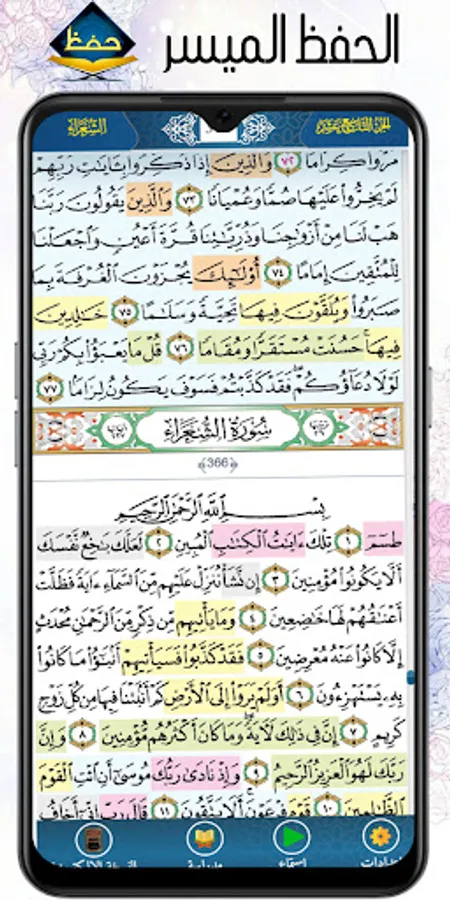 حفظ
الحفظ الميسر
الجزء التاسع عشر
الشعراء
مَرُّوا۟ كِرَامًا ٧٢ وَٱلَّذِينَ إِذَا ذُكِّرُوا۟ بِـَٔايَـٰتِ رَبِّهِمْ
لَمْ يَخِرُّوا۟ عَلَيْهَا صُمًّا وَعُمْيَانًا ٧٣ وَٱلَّذِينَ يَقُولُونَ رَبَّنَا
هَبْ لَنَا مِنْ أَزْوَٰجِنَا وَذُرِّيَّـٰتِنَا قُرَّةَ أَعْيُنٍ وَٱجْعَلْنَا
لِلْمُتَّقِينَ إِمَامًا ٧٤ أُو۟لَـٰٓئِكَ يُجْزَوْنَ ٱلْغُرْفَةَ بِمَا
صَبَرُوا۟ وَيُلَقَّوْنَ فِيهَا تَحِيَّةً وَسَلَـٰمًا ٧٥ خَـٰلِدِينَ
فِيهَا ۚ حَسُنَتْ مُسْتَقَرًّا وَمُقَامًا ٧٦ قُلْ مَا يَعْبَؤُا۟ بِكُمْ رَبِّى
لَوْلَا دُعَآؤُكُمْ ۖ فَقَدْ كَذَّبْتُمْ فَسَوْفَ يَكُونُ لِزَامًۢا ٧٧
سُورَةُ الشُّعَرَاءِ
366
بِسْمِ ٱللَّهِ ٱلرَّحْمَـٰنِ ٱلرَّحِيمِ
طسٓمٓ ١ تِلْكَ ءَايَـٰتُ ٱلْكِتَـٰبِ ٱلْمُبِينِ ٢ لَعَلَّكَ بَـٰخِعٌ نَّفْسَكَ
أَلَّا يَكُونُوا۟ مُؤْمِنِينَ ٣ إِن نَّشَأْ نُنَزِّلْ عَلَيْهِم مِّنَ ٱلسَّمَآءِ ءَايَةً فَظَلَّتْ
أَعْنَـٰقُهُمْ لَهَا خَـٰضِعِينَ ٤ وَمَا يَأْتِيهِم مِّن ذِكْرٍ مِّنَ ٱلرَّحْمَـٰنِ مُحْدَثٍ
إِلَّا كَانُوا۟ عَنْهُ مُعْرِضِينَ ٥ فَقَدْ كَذَّبُوا۟ فَسَيَأْتِيهِمْ أَنۢبَـٰٓؤُا۟ مَا كَانُوا۟
بِهِۦ يَسْتَهْزِءُونَ ٦ أَوَلَمْ يَرَوْا۟ إِلَى ٱلْأَرْضِ كَمْ أَنۢبَتْنَا فِيهَا مِن كُلِّ زَوْجٍ
كَرِيمٍ ٧ إِنَّ فِى ذَٰلِكَ لَـَٔايَةً ۖ وَمَا كَانَ أَكْثَرُهُم مُّؤْمِنِينَ ٨ وَإِنَّ
رَبَّكَ لَهُوَ ٱلْعَزِيزُ ٱلرَّحِيمُ ٩ وَإِذْ نَادَىٰ رَبُّكَ مُوسَىٰٓ أَنِ ٱئْتِ ٱلْقَوْمَ
ٱلظَّـٰلِمِينَ ١٠ قَوْمَ فِرْعَوْنَ ۚ أَلَا يَتَّقُونَ ١١ قَالَ رَبِّ إِنِّىٓ أَخَافُ
استماع